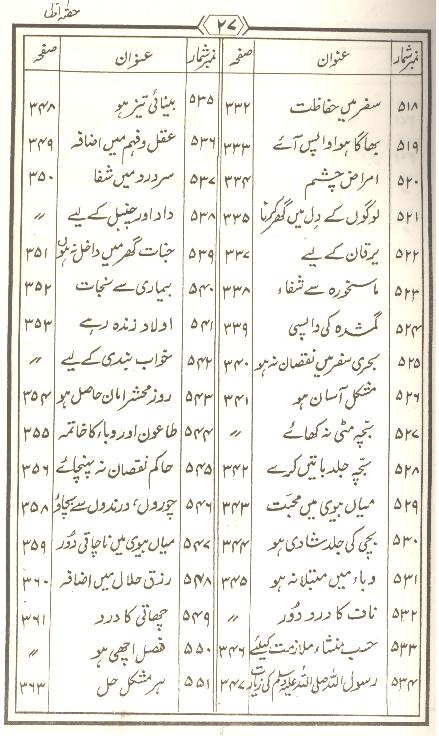 ۲۷
نمبرشمار عنوان صفحہ
۵۱۸ سفر میں حفاظت ۳۳۲
۵۱۹ بھاگا ہوا واپس آئے ۳۳۳
۵۲۰ امراض چشم ۳۳۴
۵۲۱ لوگوں کے دل میں گھر کرنا ۳۳۵
۵۲۲ یرقان کے لیے ۳۳۷
۵۲۳ ماسخورہ سے شفاء ۳۳۸
۵۲۴ گمشدہ کی واپسی ۳۳۹
۵۲۵ بحری سفر میں نقصان نہ ہو ۳۴۰
۵۲۶ مشکل آسان ہو ۳۴۱
۵۲۷ بچہ مٹی نہ کھائے 〃
۵۲۸ بچہ جلد باتیں کرے ۳۴۲
۵۲۹ میاں بیوی میں محبت ۳۴۳
۵۳۰ بچی کی جلد شادی ہو ۳۴۴
۵۳۱ وباء میں مبتلا نہ ہو ۳۴۵
۵۳۲ ناف کا درد دُور 〃
۵۳۳ حسب منشاء ملازمت کیلئے ۳۴۶
۵۳۴ رسول اللہ صلی اللہ علیہ وسلم کی زیارت ۳۴۷
نمبرشمار عنوان صفحہ
۵۳۵ بینائی تیز ہو ۳۴۸
۵۳۶ عقل و فہم میں اضافہ ۳۴۹
۵۳۷ سر درد میں شفا ۳۵۰
۵۳۸ داد اور چنبل کے لیے 〃
۵۳۹ جنات گھر میں داخل نہ ہوں ۳۵۱
۵۴۰ بیماری سے نجات ۳۵۲
۵۴۱ اولاد زندہ رہے ۳۵۳
۵۴۲ خواب بندی کے لیے 〃
۵۴۳ روز محشر امان حاصل ہو ۳۵۴
۵۴۴ طاعون اور وباء کا خاتمہ ۳۵۵
۵۴۵ حاکم نقصان نہ پہنچائے ۳۵۶
۵۴۶ چوروں، درندوں سے بچاؤ ۳۵۸
۵۴۷ میاں بیوی میں ناچاقی دُور ۳۵۹
۵۴۸ رزق حلال میں اضافہ ۳۶۰
۵۴۹ چھاتی کا درد ۳۶۱
۵۵۰ فصل اچھی ہو 〃
۵۵۱ ہر مشکل حل ۳۶۳